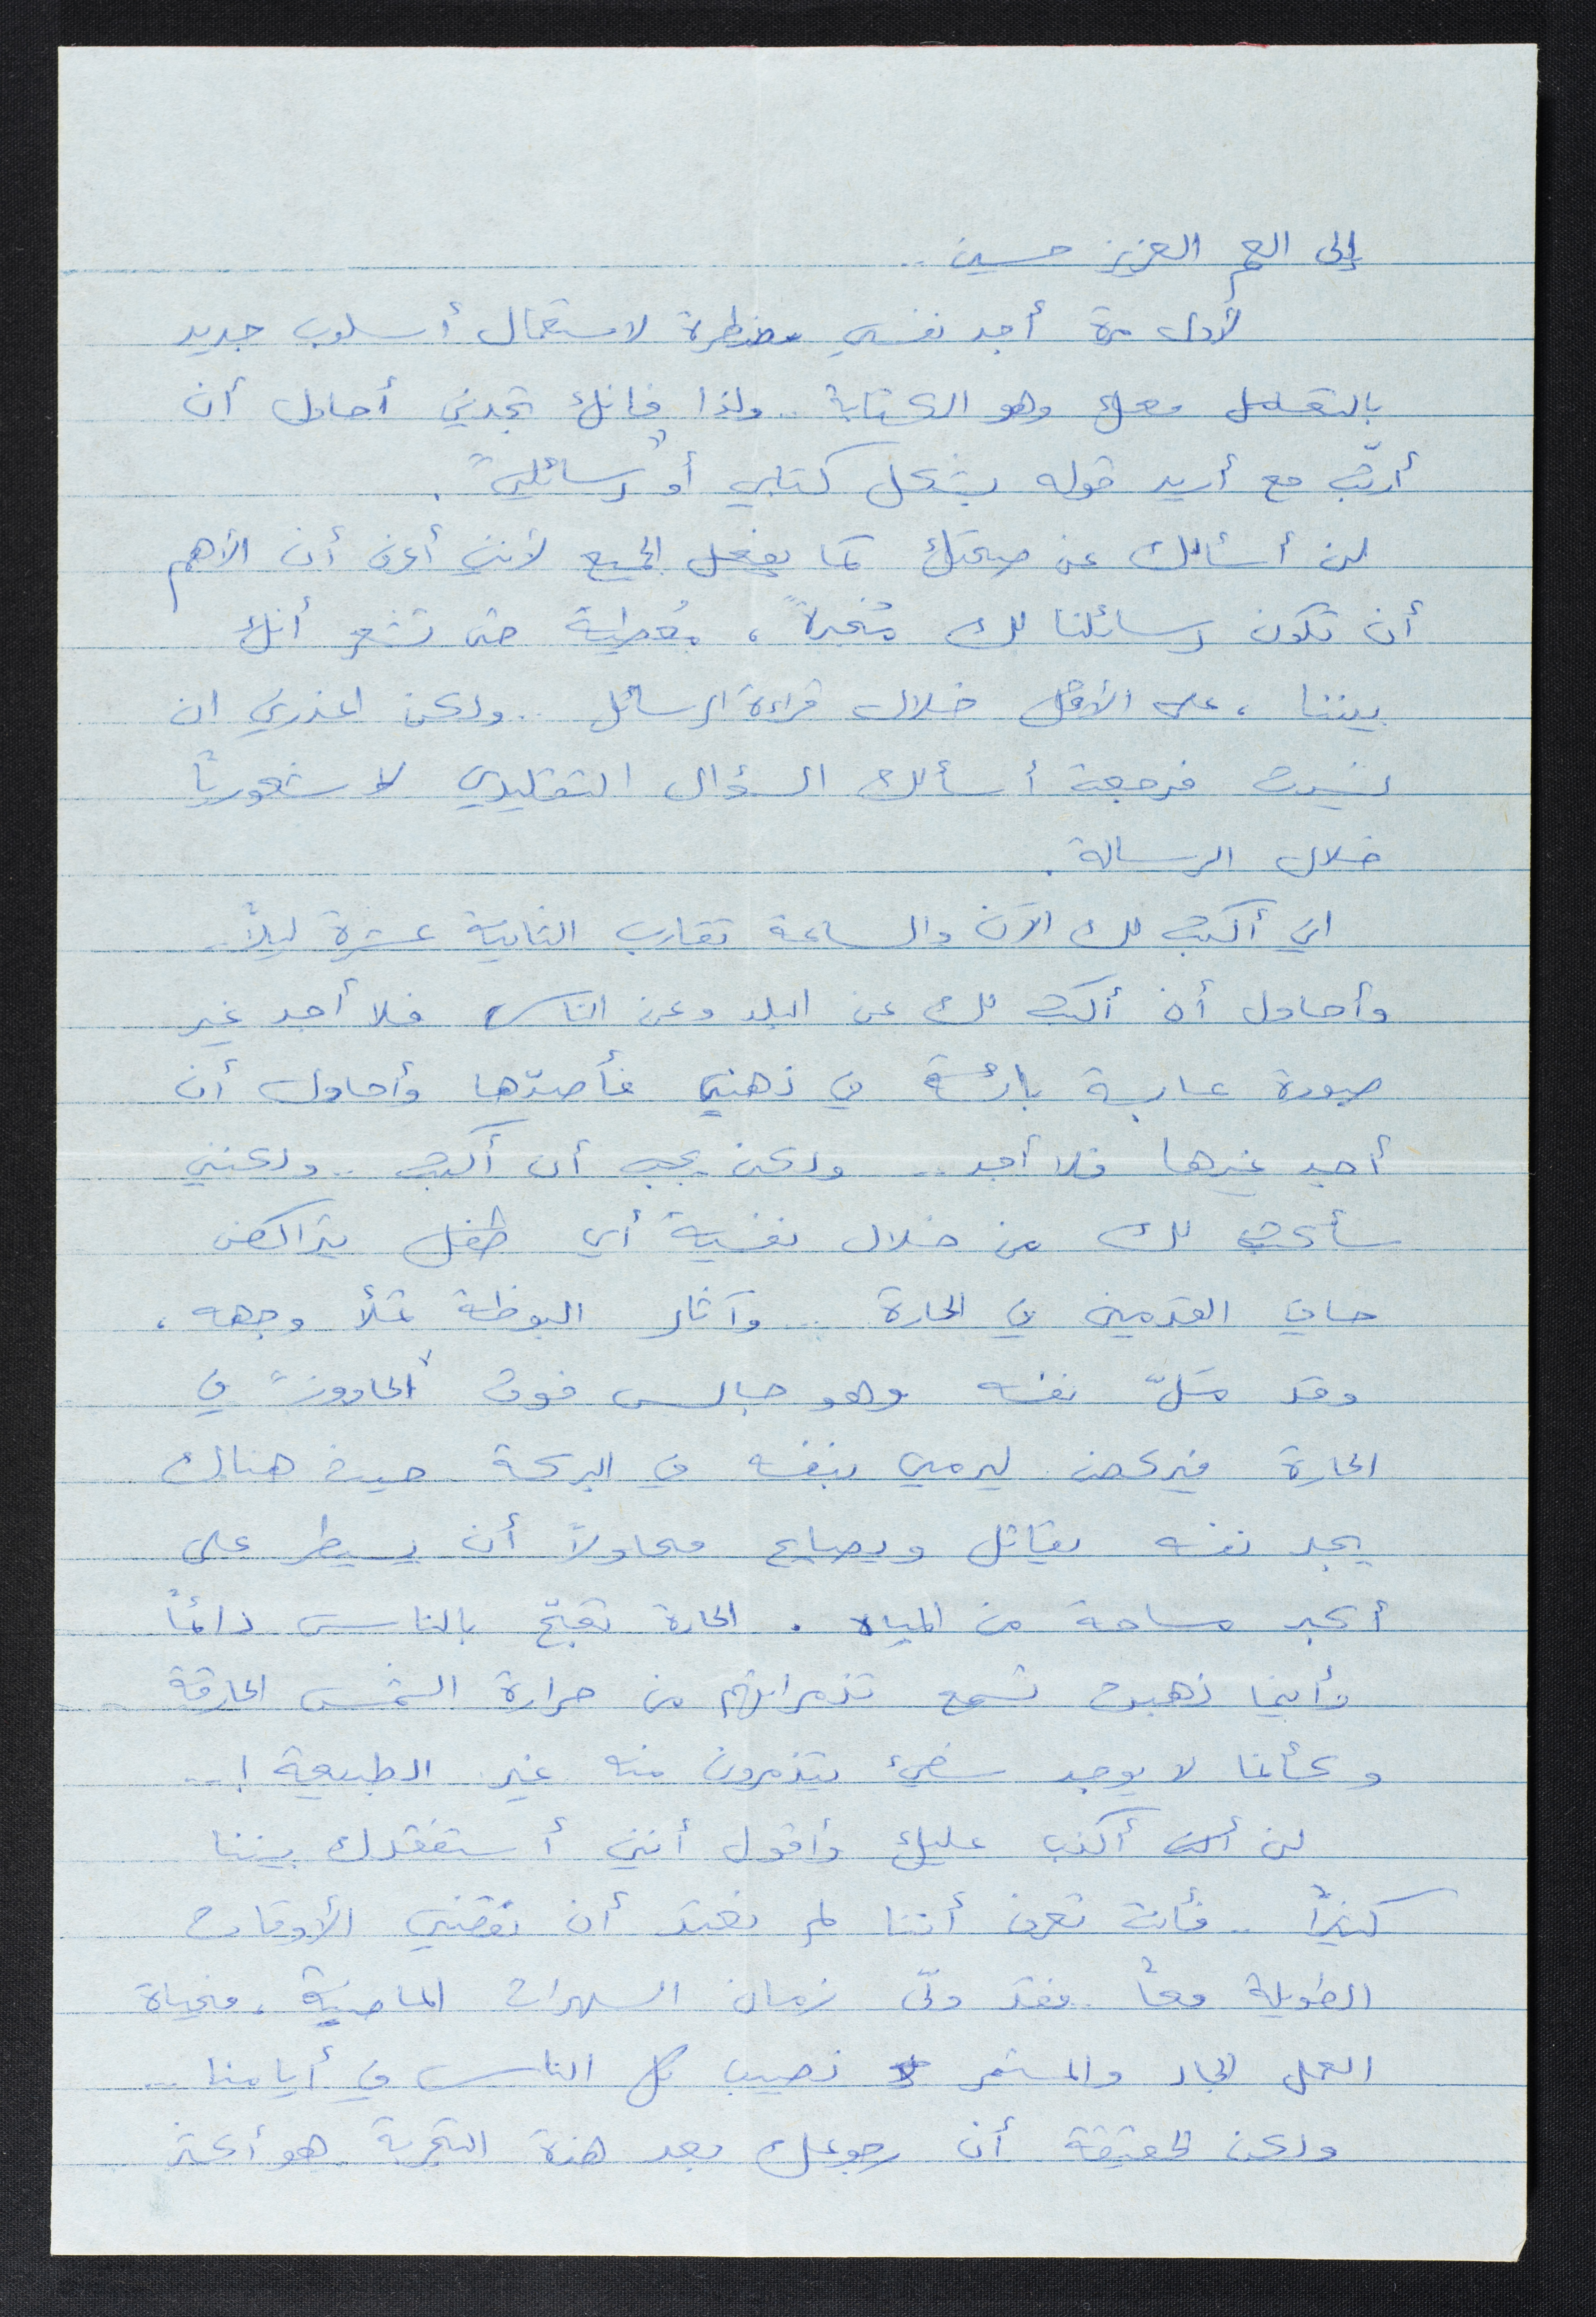 إلى العم العزيز حسين ..
لأول مرة أجد نفسي مضطرة لاستعمال أسلوب جديد
بالتعامل معك وهو الكتابة .. ولذا فانك تجدني أحاول أن
أرتّب مع أريد قوله بشكل كتابي أو "رسائلي" .
لن أسألك عن صحتك كما يفعل الجميع لأنني أعرف أن الأهم
أن تكون رسائلنا لك مُخبرةً ، مُعطية حتى تشعر أنك
بيننا ، على الأقل خلال قراءة الرسائل .. ولكن اعذرني ان
نسيت فرجعت أسألك السؤال التقليدي لا شعورياً
خلال الرسالة .
اني أكتب لك الآن والساعة تقارب الثانية عشرة ليلاً ..
وأحاول أن أكتب لك عن البلد وعن الناس فلا أجد غير
صورة عارية بائسة في ذهني فأصدّها وأحاول أن
أجد غيرها فلا أجد .. ولكن يجب أن أكتب .. ولكنني
سأكتب لك من خلال نفسية أي طفل يتراكض
حافي القدمين في الحارة .. وآثار البوظة تملأ وجهه ،
وقد ملّ نفسه وهو جالس فوق "الحاووز" في
الحارة فيركض ليرمي بنفسه في البركة حيث هنالك
يجد نفسه يقاتل ويصارع محاولاً أن يسيطر على
أكبر مساحة من المياه . الحارة تعجّ بالناس دائماً
وأينما ذهبت تسمع تذمراتهم من حرارة الشمس الحارقة
وكأنما لا يوجد شيء يتذمرون منه غير الطبيعة ! ..
لن أكذب عليك وأقول أنني أستفقدك بيننا
كثيراً .. فأنت تعرف أننا لم نعتد أن نقضي الأوقات
الطويلة معاً فقد ولّى زمان السهرات الماضية ، فحياة
العمل الجاد والمستمر نصيب كل الناس في أيامنا ..
ولكن الحقيقة أن رجوعك بعد هذه التجربة هو أكثر